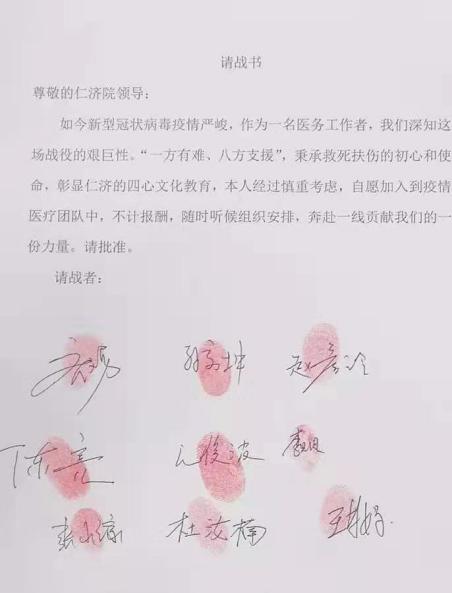 请战书
尊敬的仁济院领导:
如今新型冠状病毒疫情严峻,作为一名医务工作者,我们深知这
场战役的艰巨性。“一方有难、八方支援”,秉承救死扶伤的初心和使
命,彰显仁济的四心文化教育,本人经过慎重考虑,自愿加入到疫情
医疗团队中,不计报酬,随时听候组织安排,奔赴一线贡献我们的一
份力量。请批准。
请战者:
陈亮
杜汝楠